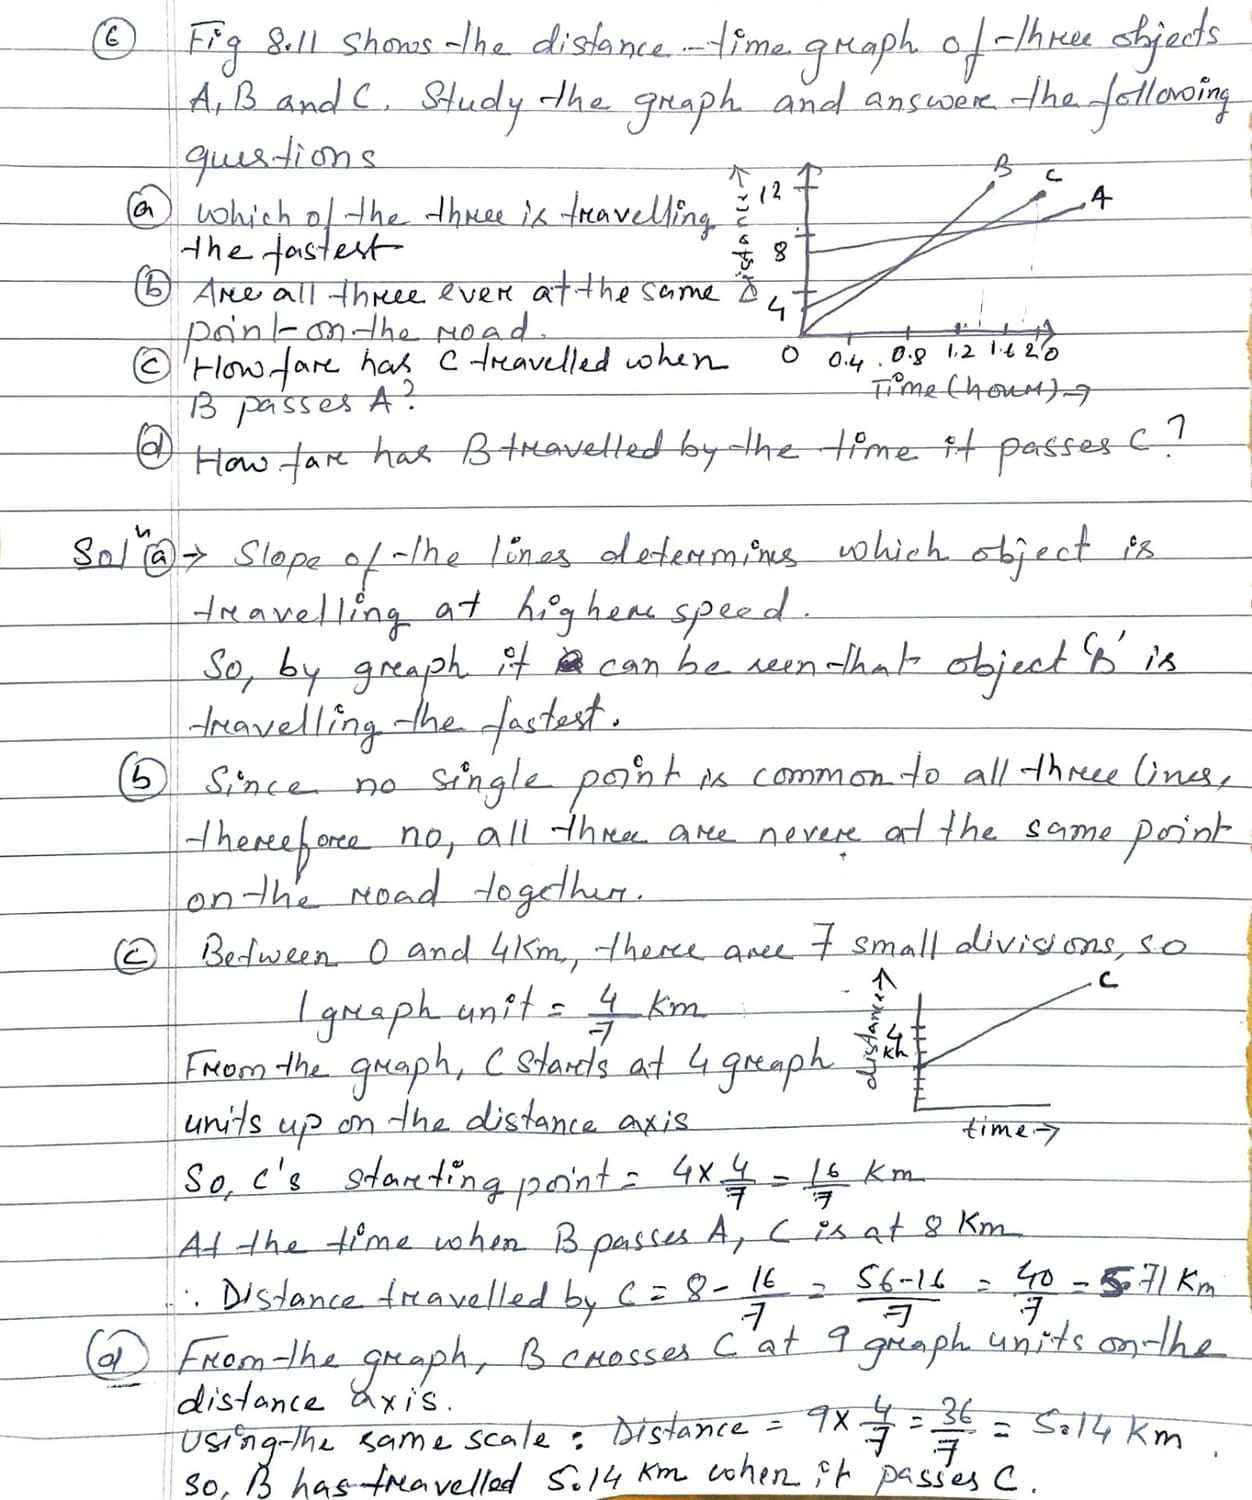 6 Fig 8.11 shows the distance-time graph of three objects
A, B and C. Study the graph and answer the following
questions
a which of the three is travelling
the fastest
b Are all three ever at the same
point on the road.
c How far has C travelled when
B passes A?
d How far has B travelled by the time it passes C?
distance →
12
8
4
0 0.4 0.8 1.2 1.6 2.0
Time (hour) →
B
C
A
Solⁿ a → Slope of the lines determines which object is
travelling at higher speed.
So, by graph it can be seen that object 'B' is
travelling the fastest.
b Since no single point is common to all three lines,
therefore no, all three are never at the same point
on the road together.
c Between 0 and 4km, there are 7 small divisions, so
1 graph unit = 4/7 km
From the graph, C starts at 4 graph
units up on the distance axis
distance →
4
C
time →
So, C's starting point = 4 x 4/7 = 16/7 Km
At the time when B passes A, C is at 8 Km
∴ Distance travelled by C = 8 - 16/7 = 56-16/7 = 40/7 = 5.71 Km
d From the graph, B crosses C at 9 graph units on the
distance axis.
Using the same scale : Distance = 9 x 4/7 = 36/7 = 5.14 Km.
So, B has travelled 5.14 Km when it passes C.